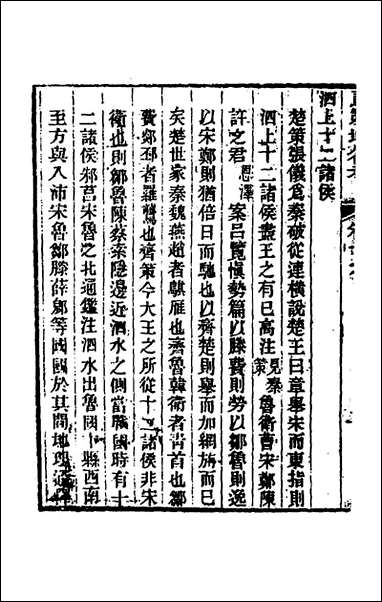 泗上十二諸侯
楚策張儀爲秦破從連橫說楚王曰章舉宋而東指則
泗上十二諸侯盡王之有巳高注見秦策魯衛曹宋鄭陳
許之君愚謹案呂覽愼勢篇以滕費則勞以鄒魯則逸
以宋鄭則猶倍日而馳也以齊楚則舉而加綱旃而巳
矣楚世家秦魏燕趙者鶀雁也齊魯韓衛者靑首也鄒
費郯邳者羅鸗也齊策今大王之所從十二諸侯非宋
衛也則鄒魯陳蔡案隱邊近泗水之側當戰國時有十
二諸侯邾莒宋魯之比通鑑注泗水出魯國卞縣西南
至方與入沛宋魯鄒滕薛郳等國國於其間地理通釋